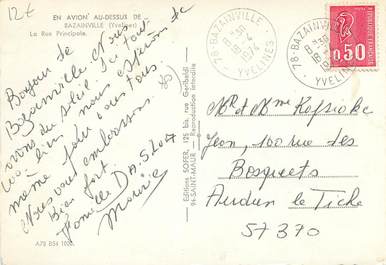 12€
EN AVION AU-DESSUS DE
BAZAINVILLE (Yvelines)
La Rue Principale.
Bonjour de
Bazainville Nous
avons du soleil. Le tout
va bien nous espérons de
même pour vous tous.
Nous vous embrassons
Bien fort.
Famille
A78 B54 1020
Editions SOFER, 125 bis, rue Garibaldi
94-SAINT-MAUR — Reproduction interdite
78-BAZAINVILLE
8H30
18
197
YVELINES
78-BAZAINVILLE
8H30
18
YVELINES
0,50
Mr et Mme
Jean, 100 rue des
Bosquets
Audun le Tiche
57390